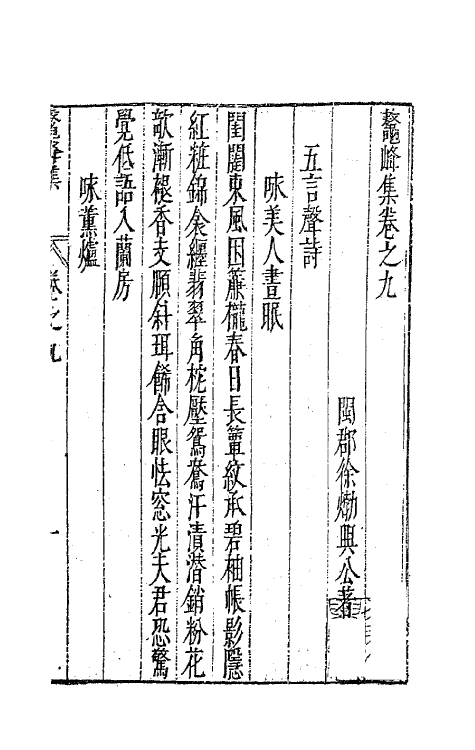 鼇峰集卷之九
閩郡徐𤊹興公著
五言聲詩
咏美人晝眠
閨闥東風困簾櫳春日長簟紋承碧柚帳影隱
紅粧錦衾纏翡翠角枕壓鴛鴦汗漬潜銷粉花
欹漸褪香支頤斜珥餙合眼怯窓光夫君恐驚
覺低語入蘭房
咏薰爐
鼇峰集
卷之九
一